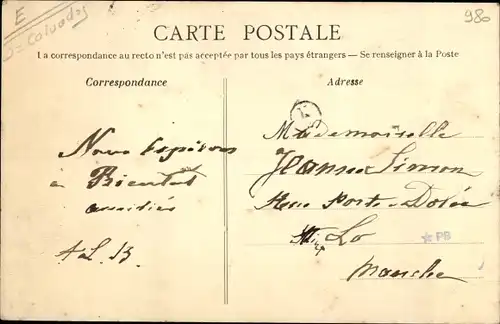 E
D = Calvados
980
CARTE POSTALE
La correspondance au recto n'est pas acceptée par tous les pays étrangers — Se renseigner à la Poste
Correspondance
Adresse
Nous
à Bientot
amitiés
A L. B.
Mademoiselle
Jeanne Simon
Rue Porte-Dorée
Lo
Manche
PB